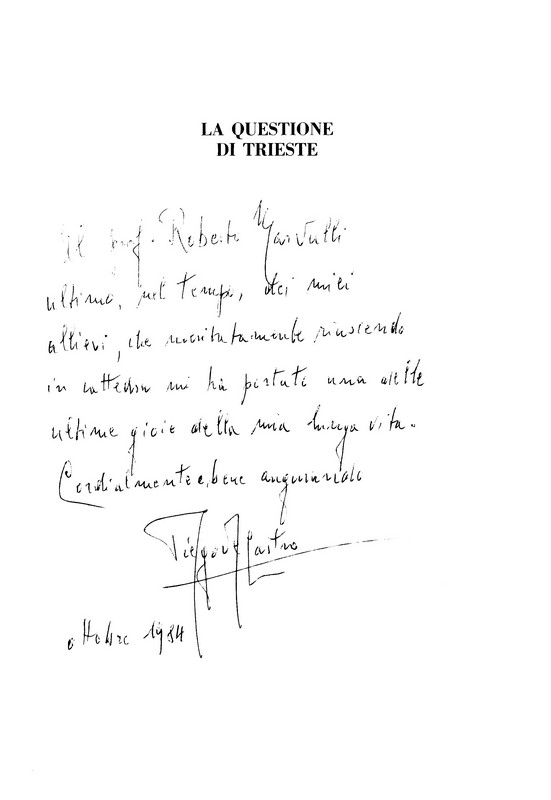 LA QUESTIONE
DI TRIESTE
Al prof. Roberto Marvulli
ultimo, nel tempo, dei miei
allievi, che meritatamente riuscendo
in cattedra mi ha portato una delle
ultime gioie della mia lunga vita.
Cordialmente e bene augurando
Diego de Castro
ottobre 1984